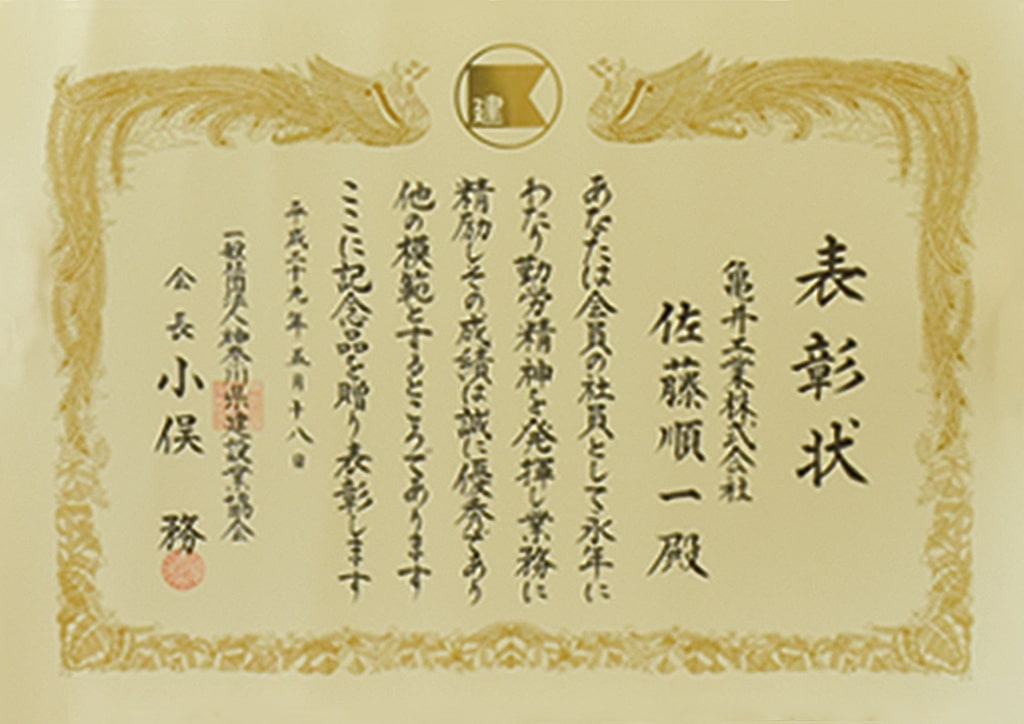 建
表彰状
亀井工業株式会社
佐藤順一殿
あなたは会員の社員として永年に
わたり勤労精神を発揮し業務に
精励しその成績は誠に優秀であり
他の模範とするところであります
ここに記念品を贈り表彰します
平成二十九年五月十八日
一般社団法人神奈川県建設業協会
会長小俣務